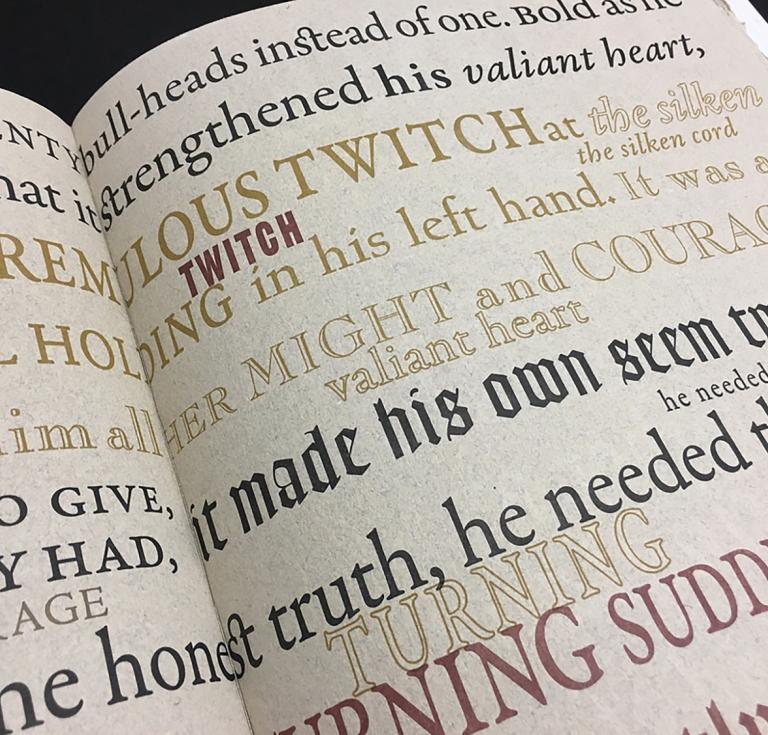 bull-heads instead of one. Bold as he
strengthened his valiant heart,
hat it
ULOUS TWITCH at the silken
the silken cord
TWITCH
REM
DING in his left hand. It was a
L HOL
HER MIGHT and COURAG
valiant heart
him all
it made his own seem
he needed
O GIVE,
Y HAD,
RAGE
he honest truth, he needed
TURNING
URNING SUDD